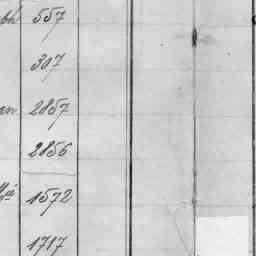 557
307
2857
2856
1572
1717